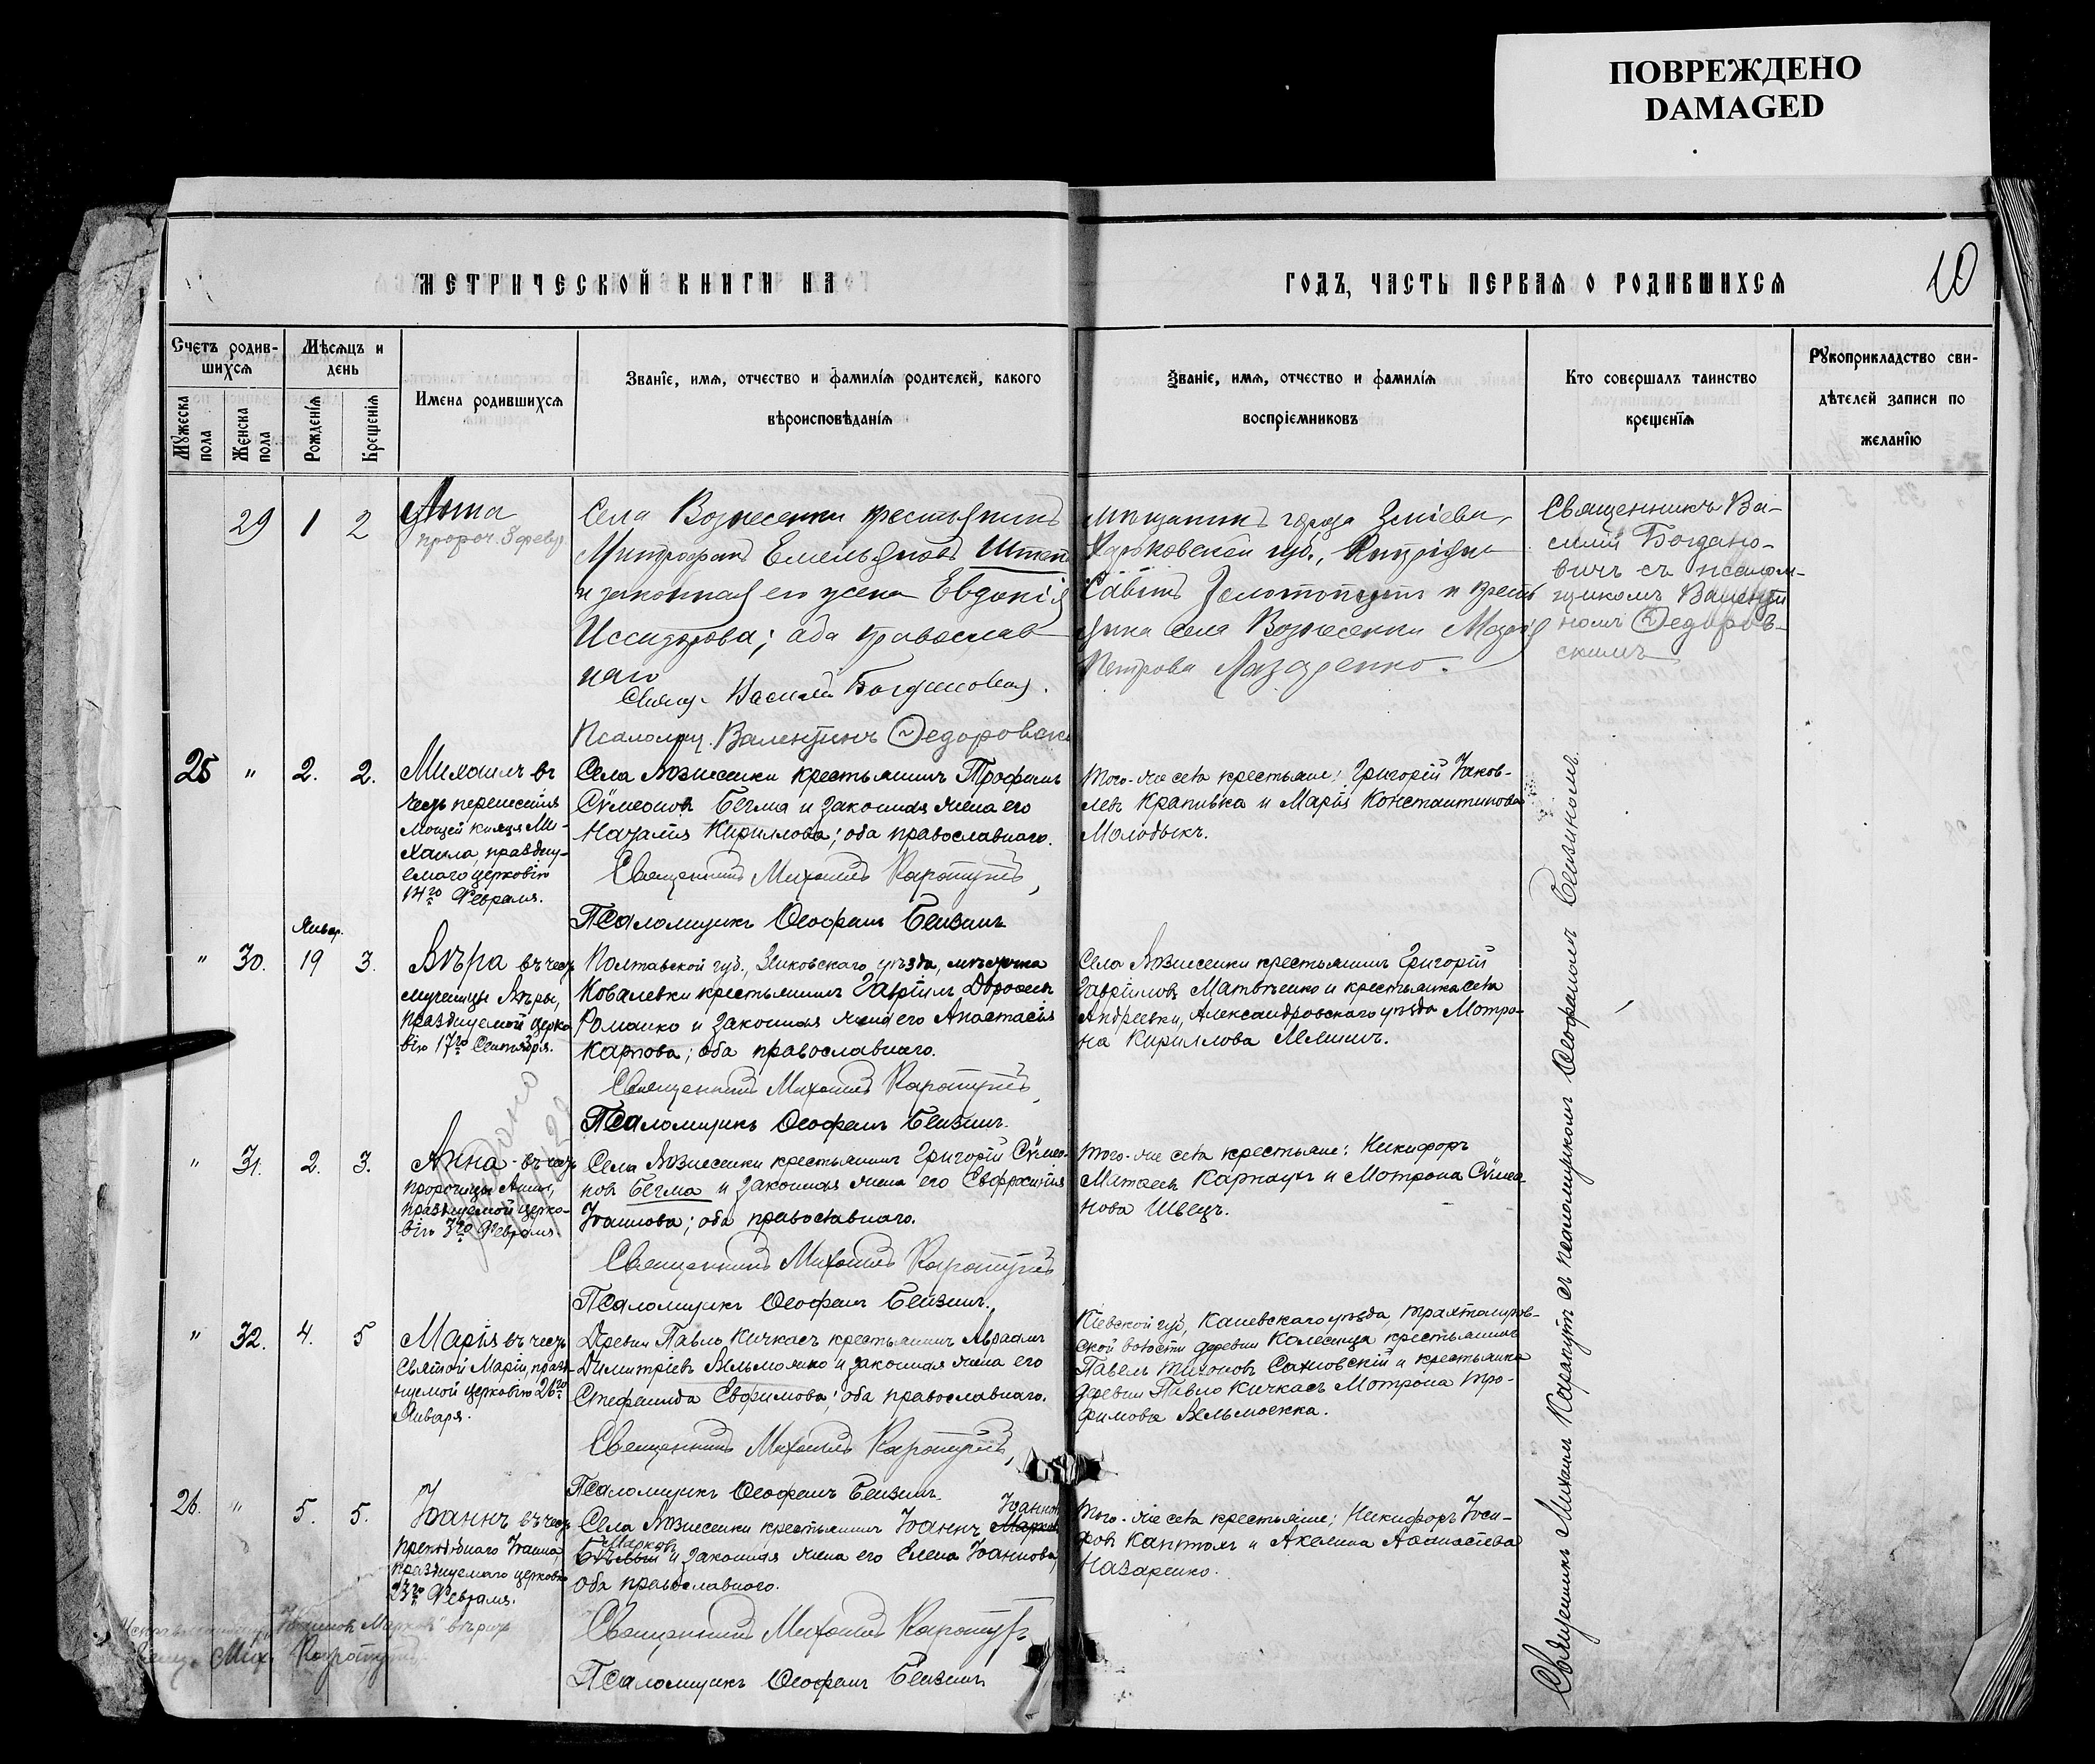 ПОВРЕЖДЕНО
DAMAGED
МЕТРИЧЕСКОЙ КНИГИ НА
ГОДЪ, ЧАСТЬ ПЕРВАЯ О РОДИВШИХСЯ
10
Счетъ родив-
шихся
Мѣсяцъ и
день
Мужеска
пола
Женска
пола
Рожденія
Крещенія
Имена родившихся
Званіе, имя, отчество и фамилія родителей, какого
вѣроисповѣданія
Званіе, имя, отчество и фамилія
воспріемниковъ
Кто совершалъ таинство
крещенія
Рукоприкладство сви-
дѣтелей записи по
желанію
29 1 2
Анна
пророч. 3 февр.
Села Вознесенки крестьянинъ
Митрофанъ Емельяновъ
и законная его жена Евдокія
Исидорова; оба православ
наго
Свящ. Василій Богдановичъ.
Псаломщ. Валентинъ Федоровскій
мѣщанинъ города Зміева,
Харьковской губ.,
Савинъ и кресть
янка села Вознесенки
Петрова Назаренко.
Священникъ Ва-
силій Богдано-
вичъ съ псалом-
щикомъ Валенти
номъ Федоров-
скимъ
25 " 2. 2.
Михаилъ въ
честь перенесенія
мощей князя Ми-
хаила, праздну-
емаго церковію
14го Февраля.
Села Вознесенки крестьянинъ Трофимъ
Сѵмеоновъ Бегма и законная жена его
Наталія Кириллова; оба православнаго.
Священникъ Михаилъ Карапутъ,
Псаломщикъ Ѳеофанъ Бензинъ
Того-же села крестьяне: Григорій Іаков-
левъ Крапивка и Марія Константинова
Молодыкъ.
Январ.
" 30. 19 3.
Вѣра въ честь
мученицы Вѣры,
празднуемой церко
вію 17го Сентября.
Полтавской губ., Зѣньковскаго уѣзда, мѣстечка
Ковалевки крестьянинъ Гавріилъ
Романко и законная жена его Анастасія
Карпова; оба православнаго.
Священникъ Михаилъ Карапутъ,
Псаломщикъ Ѳеофанъ Бензинъ.
Села Вознесенки крестьянинъ Григорій
Гавріиловъ Матвѣенко и крестьянка села
Андреевки, Александровскаго уѣзда Мотро-
на Кириллова
" 31. 2. 3.
Анна въ честь
пророчицы Анны,
празднуемой церко-
вію 3го Февраля.
Села Вознесенки крестьянинъ Григорій Сѵмео-
новъ Бегма и законная жена его Евфросинія
Іоаннова; оба православнаго.
Священникъ Михаилъ Карапутъ
Псаломщикъ Ѳеофанъ Бензинъ.
Того-же села крестьяне: Никифоръ
Матѳеевъ Карпаух и Мотрона Сѵмео-
нова Швецъ.
" 32. 4. 5
Марія въ честь
Святой Маріи, празд-
нуемой церковію 26го
Января.
Деревни Павло Кичкасъ крестьянинъ Авраамъ
Димитріевъ Вельможко и законная жена его
Стефанида Евфимова; оба православнаго.
Священникъ Михаилъ Карапутъ,
Псаломщикъ Ѳеофанъ Бензинъ.
Кіевской губ., Каневскаго уѣзда
ской волости деревни крестьянинъ
Павелъ Тихоновъ и крестьянка
деревни Павло Кичкасъ Мотрона Тро-
фимова
26. " 5. 5.
Іоаннъ въ честь
преподобнаго Іоанна,
празднуемаго церковію
23го Февраля.
Іоанновъ
Села Вознесенки крестьянинъ Іоаннъ Марковъ
Марковъ
и законная жена его Елена Іоаннова,
оба православнаго.
Священникъ Михаилъ Карапутъ
Псаломщикъ Ѳеофанъ Бензинъ
Того-же села крестьяне: Никифоръ Іоси-
фовъ и Акелина
Назаренко.
"Іоанновъ Марковъ" вѣрно
Свящ. Мих. Карапутъ
Священникъ Михаилъ Карапутъ съ псаломщикомъ Ѳеофаномъ Бензиномъ.